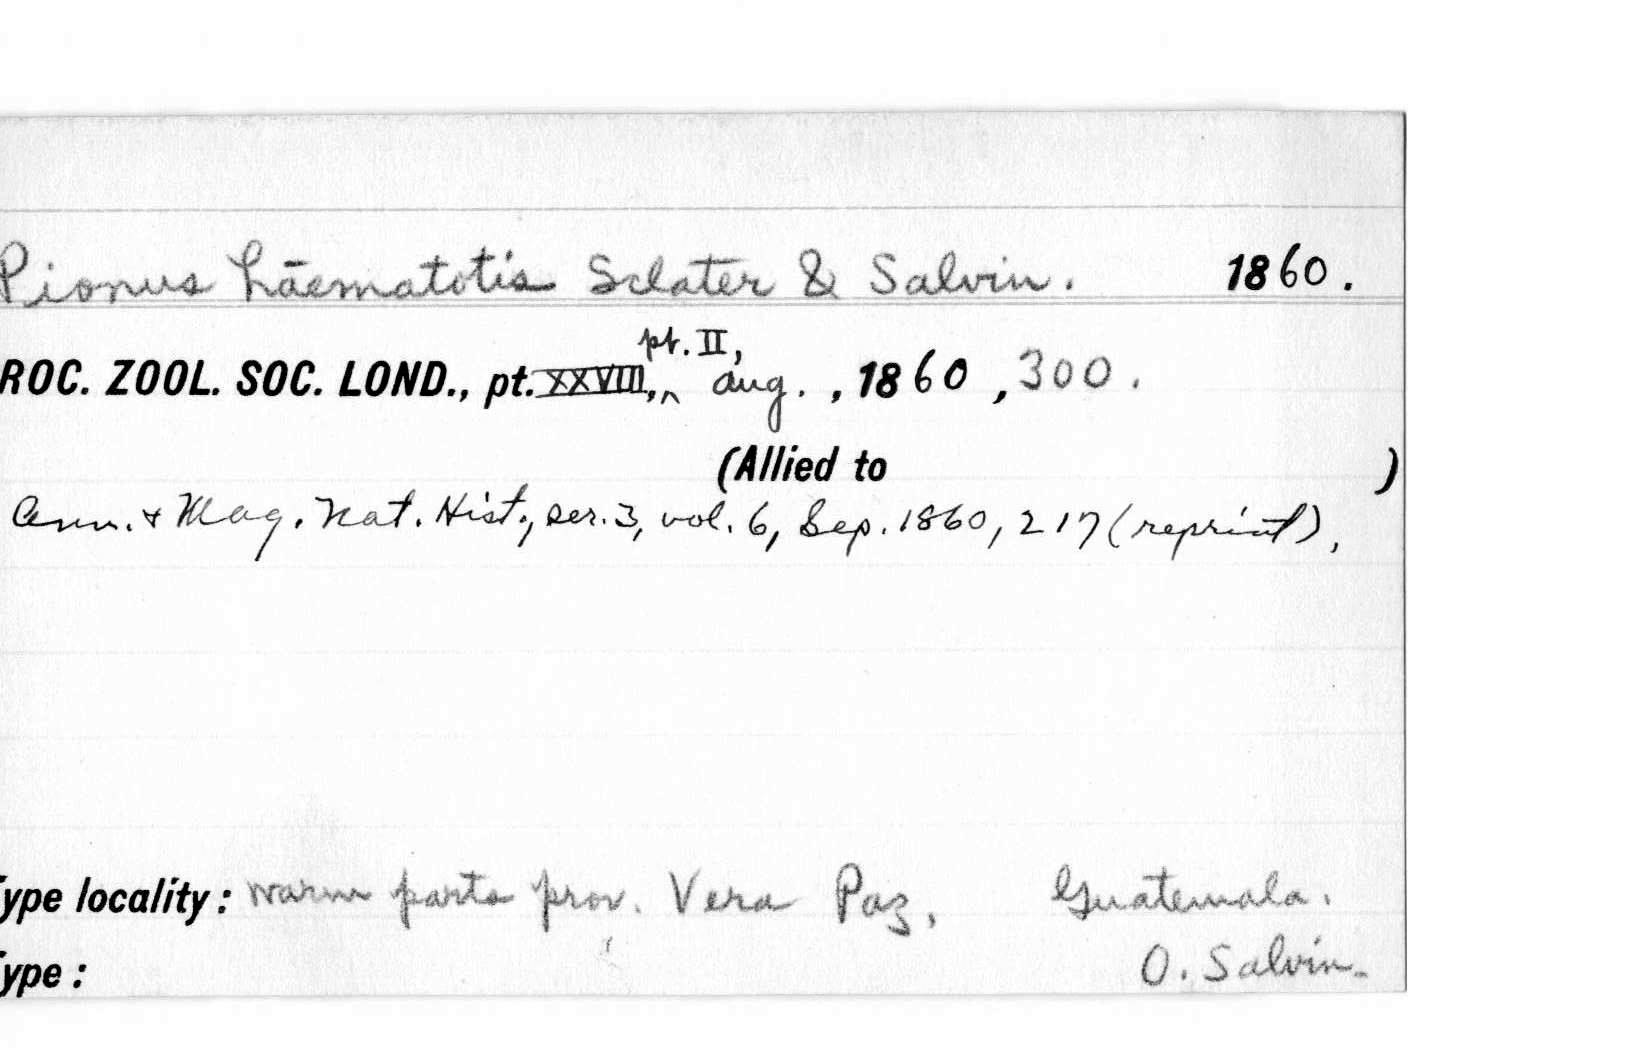 Pionus haematotis Sclater & Salvin. 1860.
pt. II,
ROC. ZOOL. SOC. LOND., pt. XXVIII,^ Aug. , 1860 , 300.
(Allied to )
Ann. & Mag. Nat. Hist., ser. 3, vol. 6, Sep. 1860, 217 (reprint),
ype locality: warm parts prov. Vera Paz, Guatemala.
ype: O. Salvin.